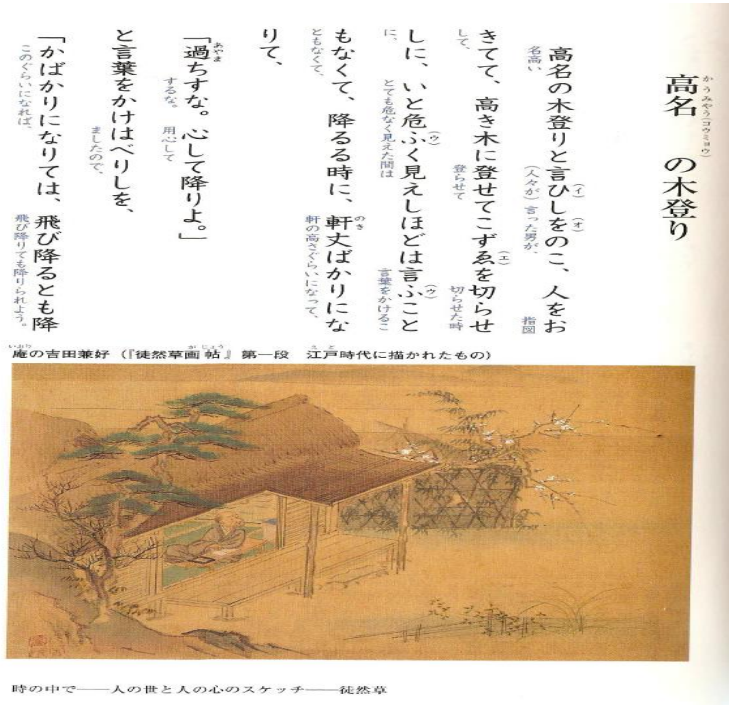 かうみやう(コウミョウ)
高名 の木登り
(イ) (オ)
高名の木登りと言ひしをのこ、人をお
名高い (人々が)言った男が、 指図
(エ)
きてて、高き木に登せてこずゑを切らせ
して、 登らせて 切らせた時
(ウ) (ウ)
しに、いと危ふく見えしほどは言ふこと
に、 とても危なく見えた間は 言葉をかけるこ
のき
もなくて、降るる時に、軒丈ばかりにな
ともなくて、 軒の高さぐらいになって、
りて、
あやま
「過ちすな。心して降りよ。」
するな。 用心して
と言葉をかけはべりしを、
ましたので、
「かばかりになりては、飛び降るとも降
このぐらいになれば、 飛び降りても降りられよう。
いおり がじょう えど
庵の吉田兼好(『徒然草画帖』 第一段 江戸時代に描かれたもの)
時の中で――人の世と人の心のスケッチ――徒然草